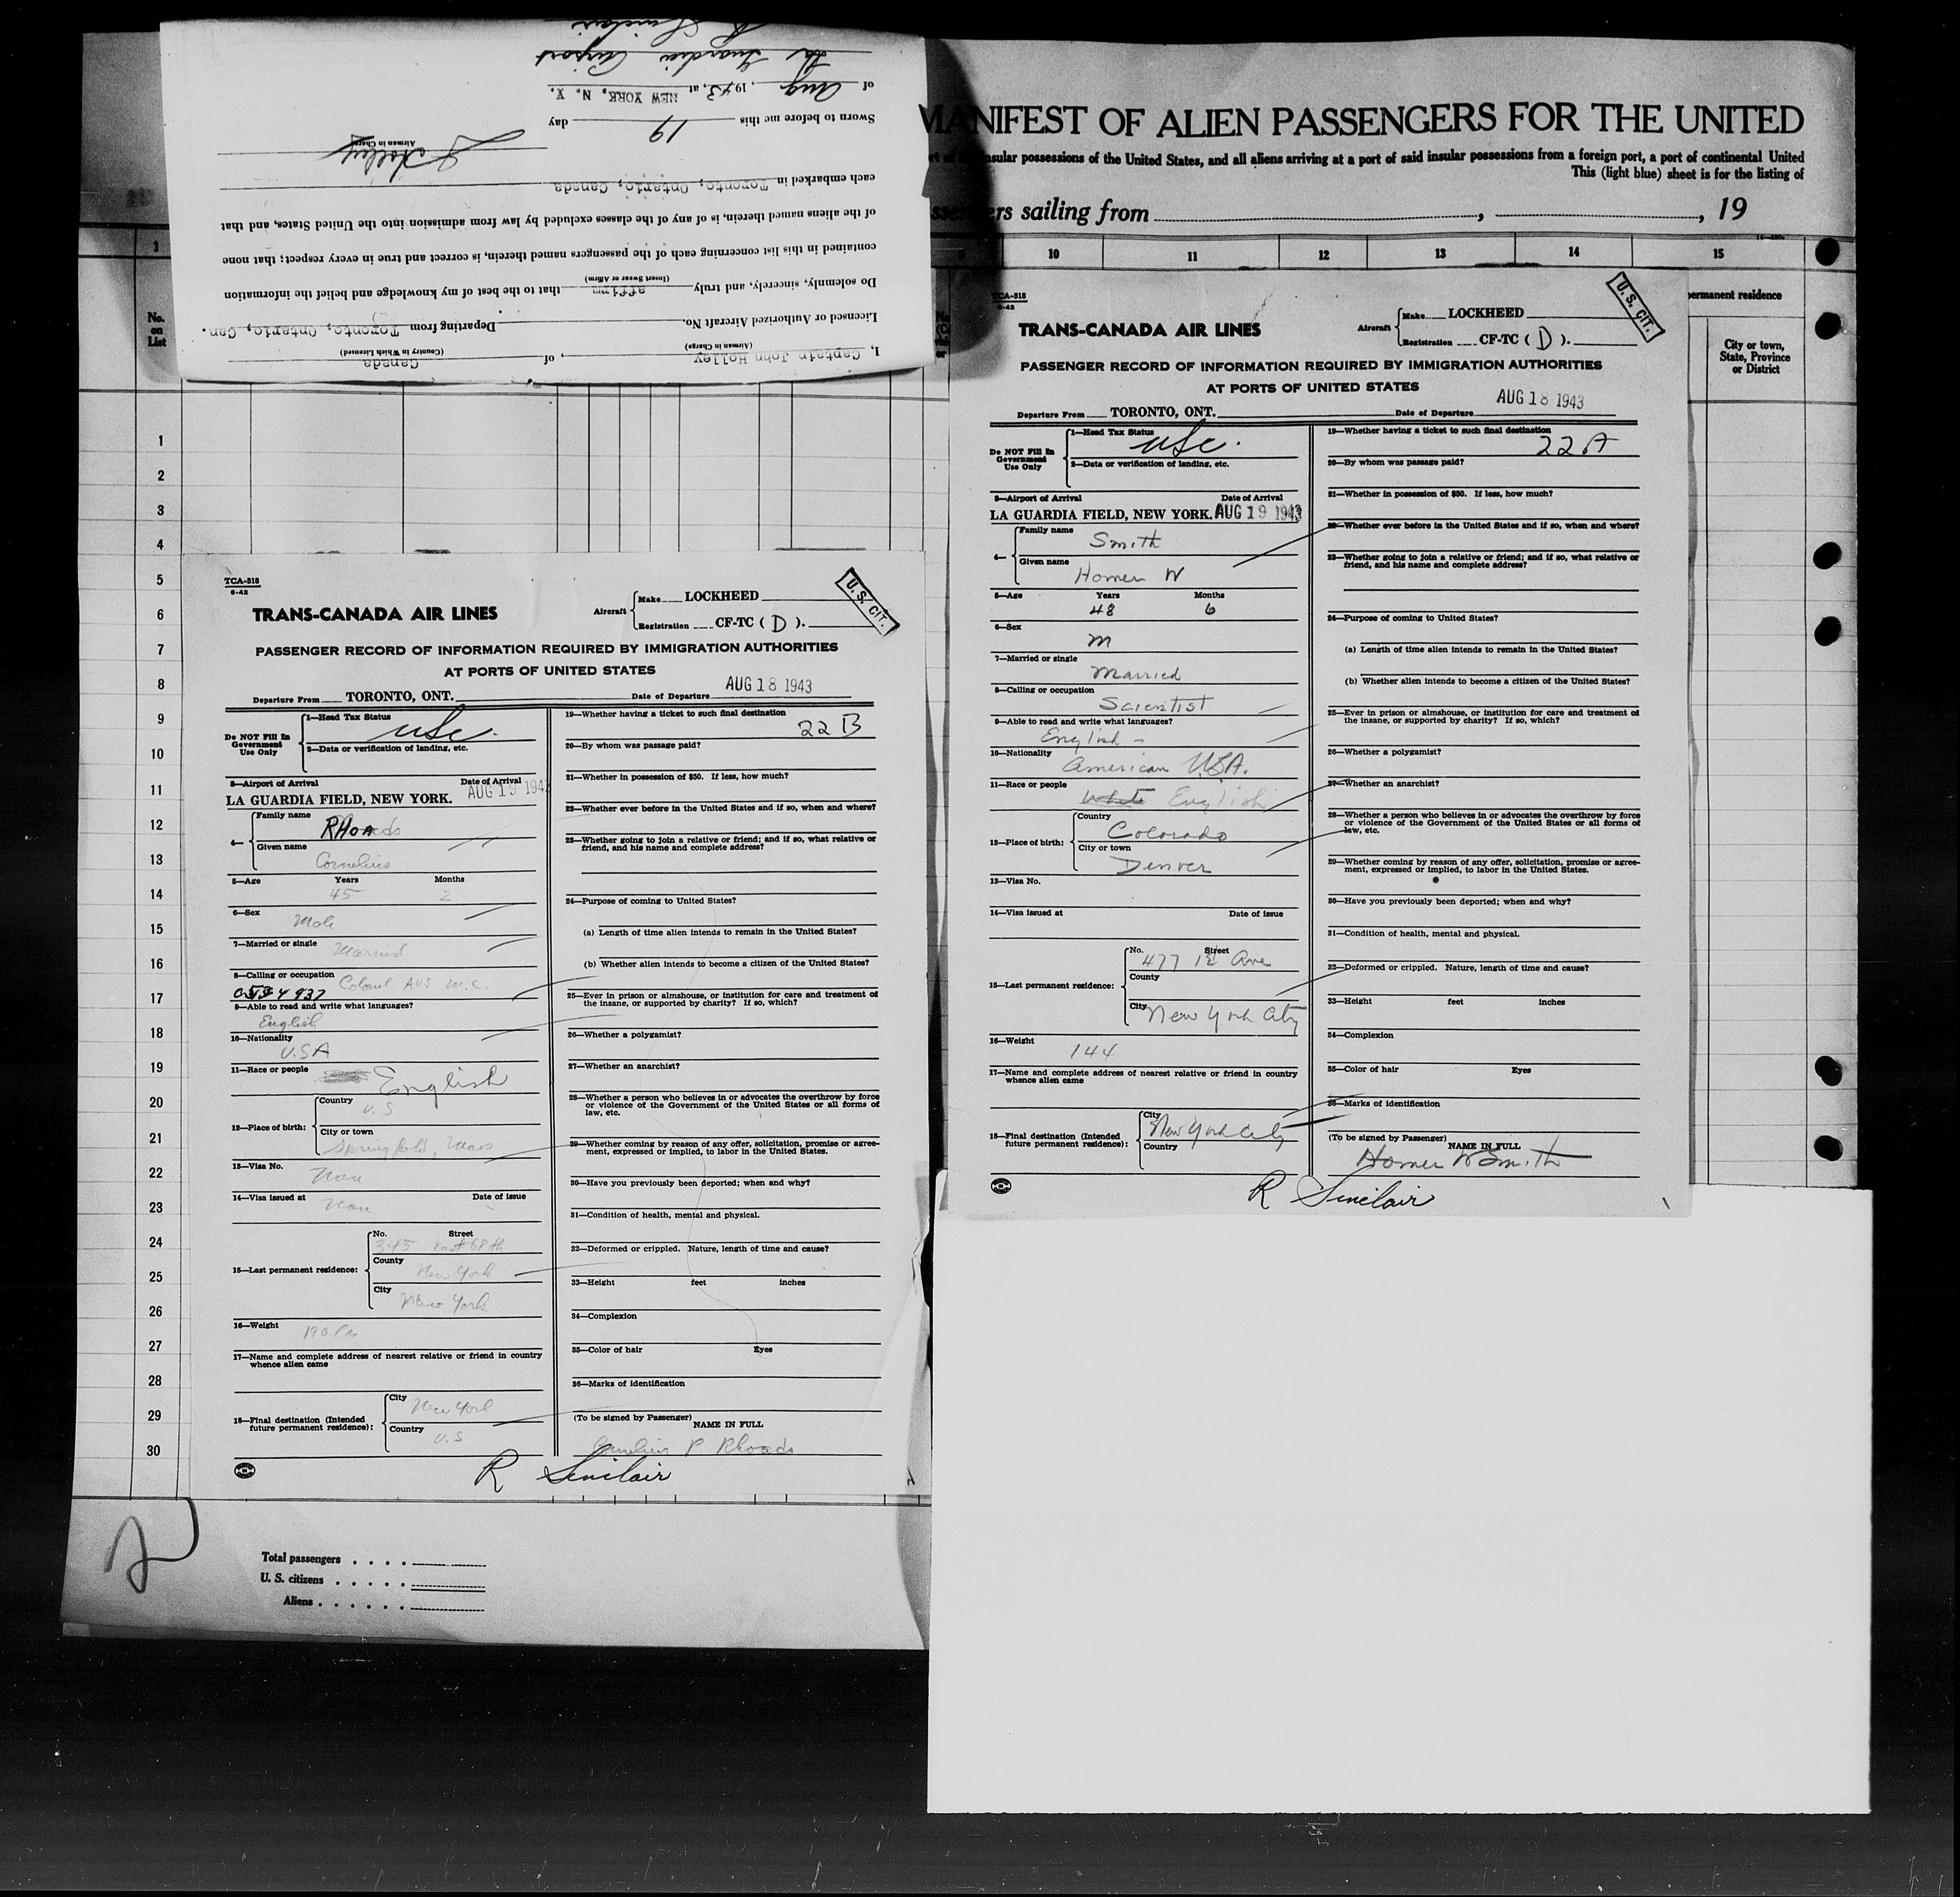 I, Captain John Holley, of Canada
(Airman in Charge) (Country in Which Licensed)
Licensed or Authorized Aircraft No. Departing from Toronto, Ontario, Can.
Do solemnly, sincerely, and truly affirm that to the best of my knowledge and belief the information
(Insert Swear or Affirm)
contained in this list concerning each of the passengers named therein, is correct and true in every respect; that none
of the aliens named therein, is of any of the classes excluded by law from admission into the United States, and that
each embarked in Toronto, Ontario, Canada
J Holley
Airman in Charge
Sworn to before me this 19 day
of Aug, 1943, at NEW YORK, N. Y.
La Guardia Airport
R Sinclair
MANIFEST OF ALIEN PASSENGERS FOR THE UNITED
insular possessions of the United States, and all aliens arriving at a port of said insular possessions from a foreign port, a port of continental United
This (light blue) sheet is for the listing of
sailing from , , 19
1
No.
on
List
1
2
3
4
5
6
7
8
9
10
11
12
13
14
15
16
17
18
19
20
21
22
23
24
25
26
27
28
29
30
TCA-518
6-42
TRANS-CANADA AIR LINES
Aircraft
Make LOCKHEED
Registration CF-TC ( D ).
U. S. CIT.
PASSENGER RECORD OF INFORMATION REQUIRED BY IMMIGRATION AUTHORITIES
AT PORTS OF UNITED STATES
Departure From TORONTO, ONT. Date of Departure AUG 18 1943
Do NOT Fill In
Government
Use Only
1—Head Tax Status
USC.
2—Data or verification of landing, etc.
3—Airport of Arrival Date of Arrival
LA GUARDIA FIELD, NEW YORK. AUG 19 1943
4—
Family name
RHOADS
Given name
Cornelius
5—Age Years Months
45 2
6—Sex
Male
7—Married or single
Married
8—Calling or occupation
Colonel AUS M.C.
9—Able to read and write what languages?
English
10—Nationality
U.S.A
11—Race or people
English
12—Place of birth:
Country
U.S
City or town
Springfield, Mass
13—Visa No.
None
14—Visa issued at Date of issue
None
15—Last permanent residence:
No. Street
345 East 68th
County
New York
City
New York
16—Weight
190 lbs
17—Name and complete address of nearest relative or friend in country
whence alien came
18—Final destination (Intended
future permanent residence):
City
New York
Country
U.S
19—Whether having a ticket to such final destination
22 B
20—By whom was passage paid?
21—Whether in possession of $50. If less, how much?
22—Whether ever before in the United States and if so, when and where?
23—Whether going to join a relative or friend; and if so, what relative or
friend, and his name and complete address?
24—Purpose of coming to United States?
(a) Length of time alien intends to remain in the United States?
(b) Whether alien intends to become a citizen of the United States?
25—Ever in prison or almshouse, or institution for care and treatment of
the insane, or supported by charity? If so, which?
26—Whether a polygamist?
27—Whether an anarchist?
28—Whether a person who believes in or advocates the overthrow by force
or violence of the Government of the United States or all forms of
law, etc.
29—Whether coming by reason of any offer, solicitation, promise or agree-
ment, expressed or implied, to labor in the United States.
30—Have you previously been deported; when and why?
31—Condition of health, mental and physical.
32—Deformed or crippled. Nature, length of time and cause?
33—Height feet inches
34—Complexion
35—Color of hair Eyes
36—Marks of identification
(To be signed by Passenger) NAME IN FULL
Cornelius P. Rhoads
R Sinclair
2
Total passengers
U. S. citizens
Aliens
10 11 12 13 14 15
permanent residence
City or town,
State, Province
or District
TCA-518
6-42
TRANS-CANADA AIR LINES
Aircraft
Make LOCKHEED
Registration CF-TC ( D ).
U. S. CIT.
PASSENGER RECORD OF INFORMATION REQUIRED BY IMMIGRATION AUTHORITIES
AT PORTS OF UNITED STATES
Departure From TORONTO, ONT. Date of Departure AUG 18 1943
Do NOT Fill In
Government
Use Only
1—Head Tax Status
USC.
2—Data or verification of landing, etc.
3—Airport of Arrival Date of Arrival
LA GUARDIA FIELD, NEW YORK. AUG 19 1943
4—
Family name
Smith
Given name
Homer W
5—Age Years Months
48 6
6—Sex
M
7—Married or single
Married
8—Calling or occupation
Scientist
9—Able to read and write what languages?
English —
10—Nationality
American U.S.A.
11—Race or people
White English
12—Place of birth:
Country
Colorado
City or town
Denver
13—Visa No.
14—Visa issued at Date of issue
15—Last permanent residence:
No. Street
477 1st Ave
County
City
New York City
16—Weight
144
17—Name and complete address of nearest relative or friend in country
whence alien came
18—Final destination (Intended
future permanent residence):
City
New York City
Country
19—Whether having a ticket to such final destination
22 A
20—By whom was passage paid?
21—Whether in possession of $50. If less, how much?
22—Whether ever before in the United States and if so, when and where?
23—Whether going to join a relative or friend; and if so, what relative or
friend, and his name and complete address?
24—Purpose of coming to United States?
(a) Length of time alien intends to remain in the United States?
(b) Whether alien intends to become a citizen of the United States?
25—Ever in prison or almshouse, or institution for care and treatment of
the insane, or supported by charity? If so, which?
26—Whether a polygamist?
27—Whether an anarchist?
28—Whether a person who believes in or advocates the overthrow by force
or violence of the Government of the United States or all forms of
law, etc.
29—Whether coming by reason of any offer, solicitation, promise or agree-
ment, expressed or implied, to labor in the United States.
30—Have you previously been deported; when and why?
31—Condition of health, mental and physical.
32—Deformed or crippled. Nature, length of time and cause?
33—Height feet inches
34—Complexion
35—Color of hair Eyes
36—Marks of identification
(To be signed by Passenger) NAME IN FULL
Homer W Smith
R Sinclair